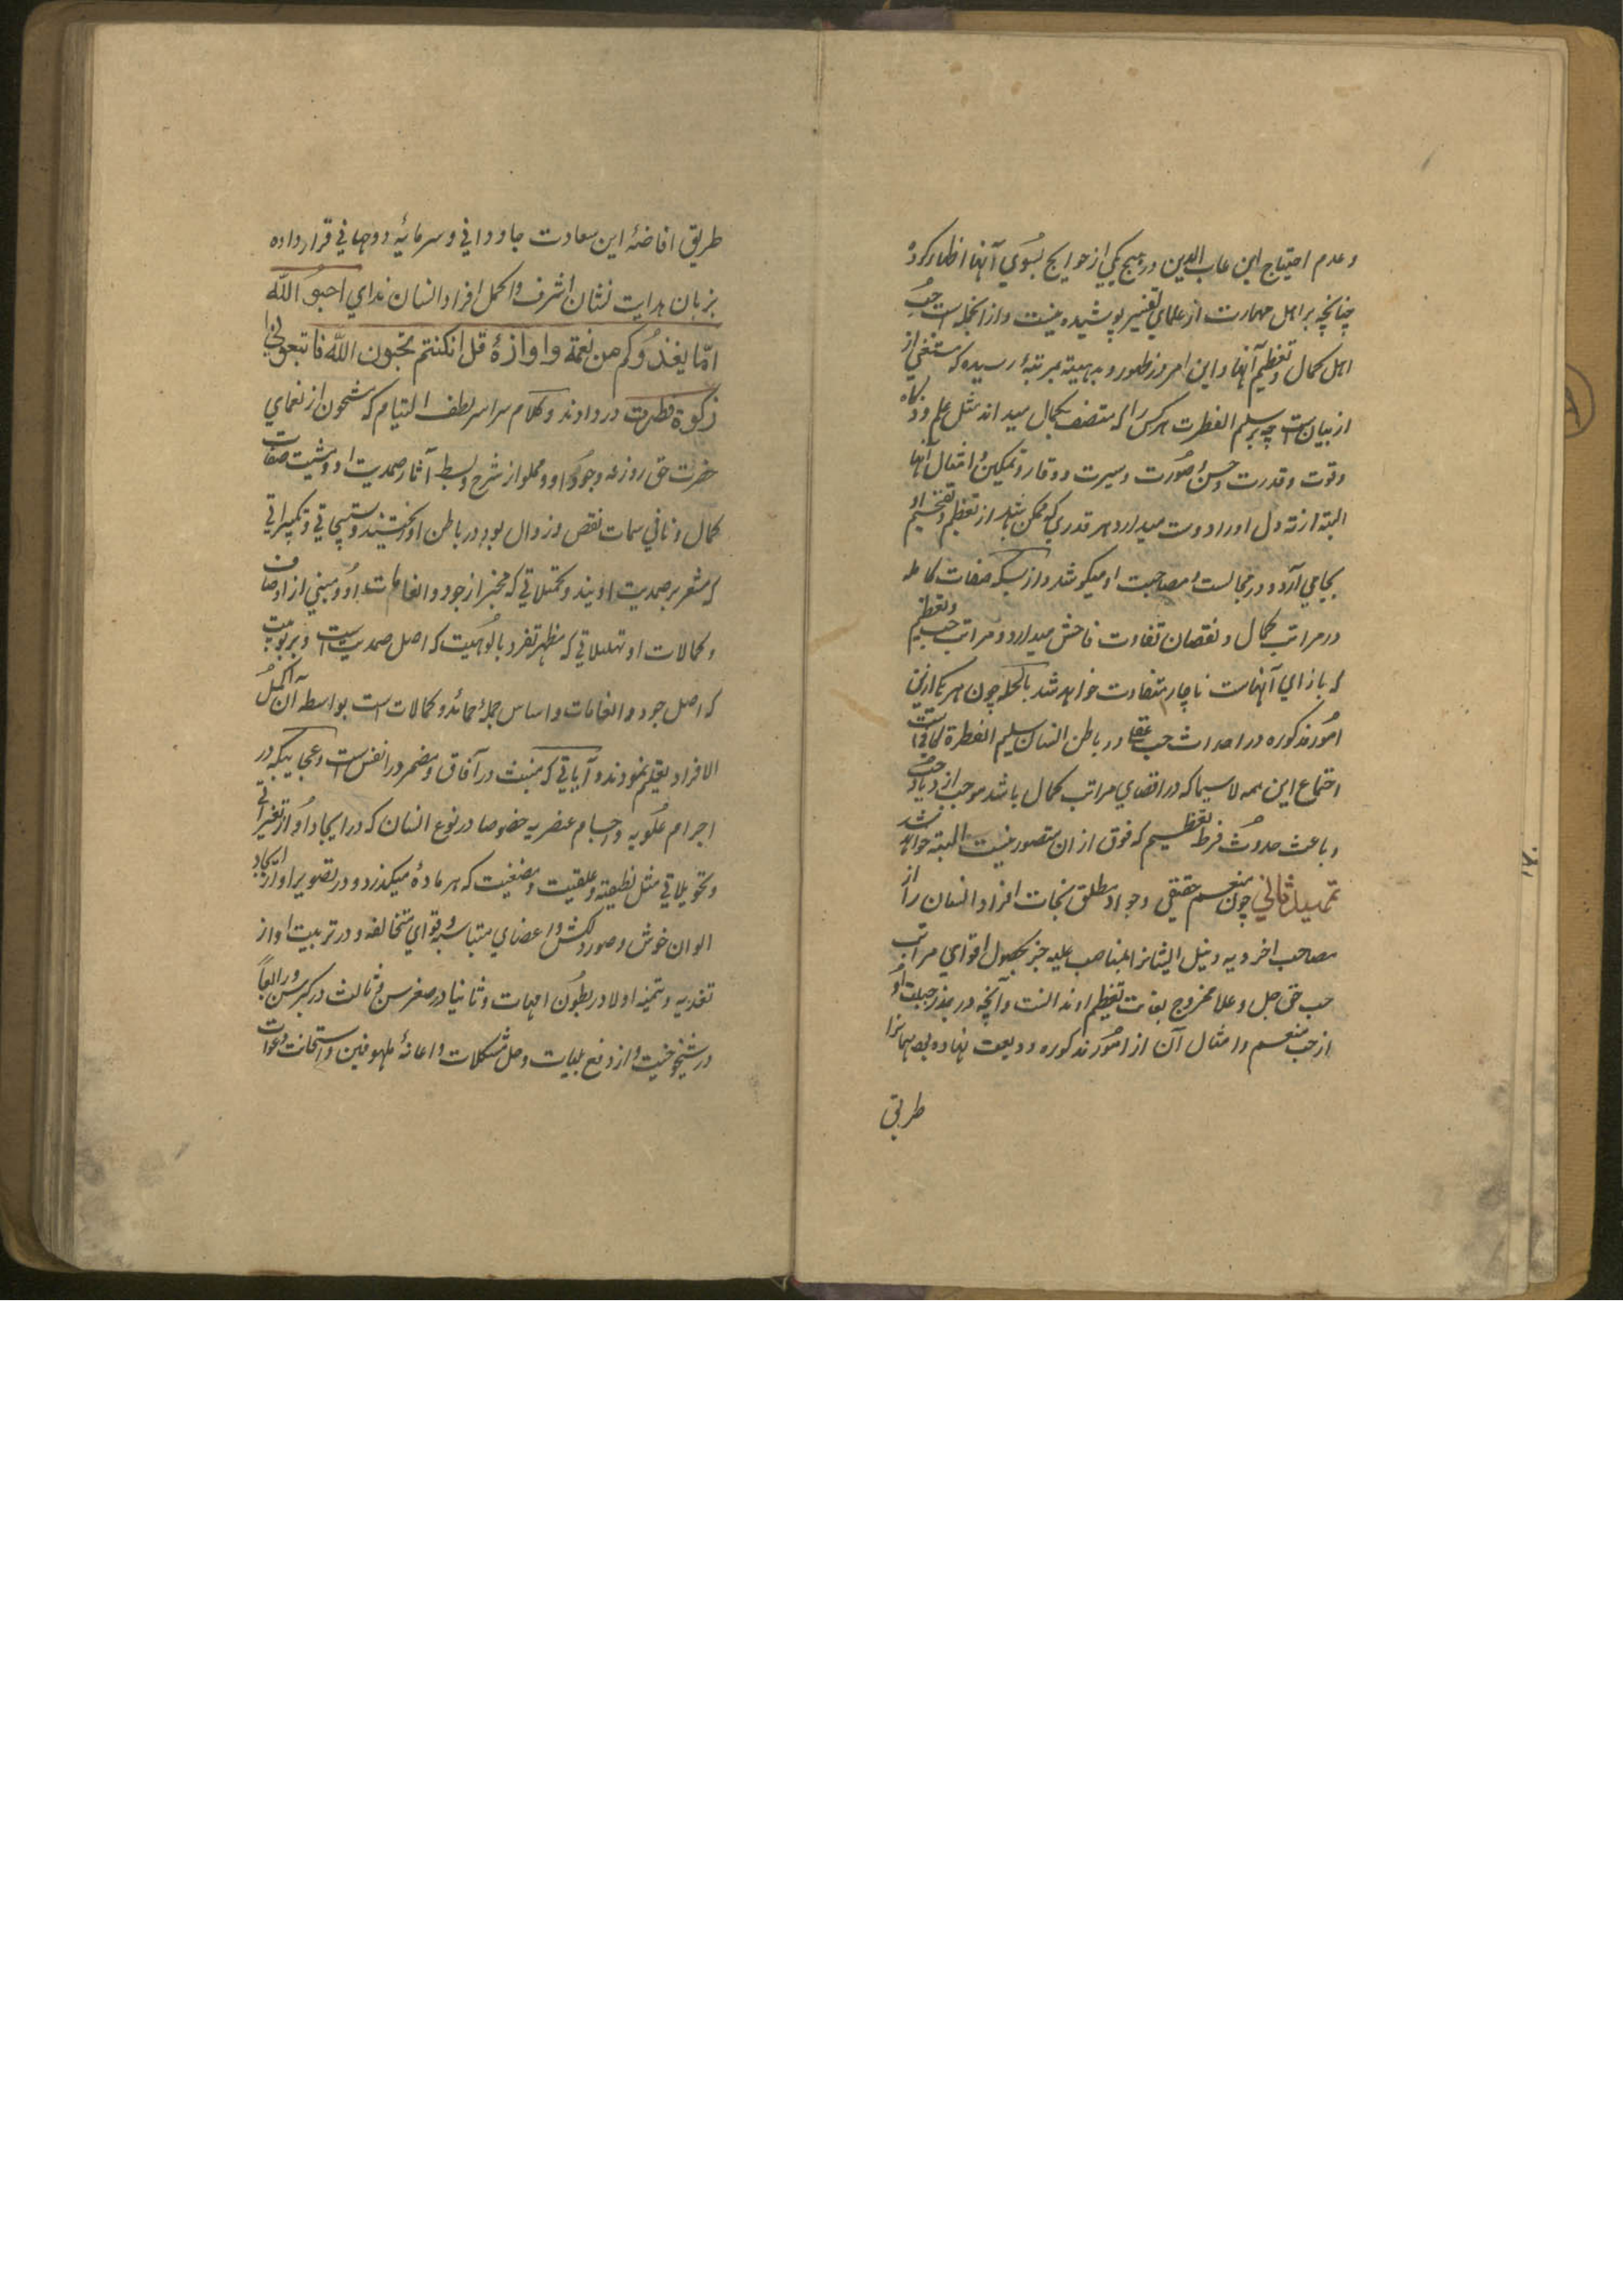 وعدم احتیاج این عابدین در هیچ یکی از حوایج بسوی آنها اظهار کرده
چنانچه بر اهل مهارت از علمای تفسیر پوشیده نیست و از انجمله است حب
اهل کمال و تعظیم آنها و این امر در ظهور و بدیهیته بمرتبهٔ رسیده که مستغنی از
از بیان ست چه هر سلیم الفطرت هر کس را که متصف بکمال میداند مثل علم و ذکاء
وقوت وقدرت وحسن صورت وسیرت ووقار وتمکین وامثال آنها
البته از ته دل او را دوست میدارد هر قدری که ممکن باشد از تعظیم وتفخیم او
بجا می آرد و در مجالست و مصاحبت او میکوشد و از بسکه صفات کامله
در مراتب کمال و نقصان تفاوت فاحش میدارد و مراتب حب وتعظیم
که بازای آنهاست ناچار متفاوت خواهد شد بالجمله چون هر یک ازین
امور مذکوره در احداث حب عقلی در باطن انسان سلیم الفطرة کافی ست
اجتماع این همه لاسیما که در اقصای مراتب کمال باشد موجب ازدیاد حب
و باعث حدوث فرط تعظیم که فوق ازان متصور نیست البته خواهد شد
تمهید ثانی چون منعم حقیقی وجواد مطلق نجات افراد انسان را از
مصاحب اخرویه و نیل ایشانرا بمناصب علیه جز بحصول اقوای مراتب
حب حق جل وعلا ممزوج بغایت تعظیم او ندانست و آنچه در بذر جبلت او
از حب منعم و امثال آن از امور مذکوره ودیعت نهاده بود همانرا
طریق
طریق افاضهٔ این سعادت جاودانی و سرمایهٔ دوجهانی قرار داده
بزبان هدایت نشان اشرف و اکمل افراد انسان ندای احبوا الله
لما یغذوکم من نعمة و اوازهٔ قل ان کنتم تحبون الله فاتبعونی
زکوة فطرت در دادند و کلام سراسر لطف التیام که مشحون از نعمای
حضرت حق روزعه وجود او ومملو از شرح وبسط آثار صمدیت او ومثبت صفات
کمال ونافی سمات نقص وزوال بود در باطن او بخشیدند وتسبیحاتی وتکبیراتی
که مشعر بر صمدیت اویند وتحمیلاتی که مخبر از جود وانعامات او ومبنی از اوصاف
وکمالات او تهلیلاتی که مظهر تفرد بالوهیت که اصل صمدیت ست وربوبیت
که اصل جود و انعامات واساس جملهٔ حمائد وکمالات است بواسطه آن اکمل
الافراد تعلیم نمودند و آیاتی که منبث در آفاق ومضمر در انفس ست وعجایبیکه در
اجرام علویه واجسام عنصریه خصوصا در نوع انسان که در ایجاد او از تغیراتی
وتحویلاتی مثل نطفیته وعلقیت ومضغیت که بر مادهٔ میگذرد و در تصویر او از ایجاد
الوان خوش وصور دلکش واعضای متباینه وقوای متخالفه و در تربیت او از
تغذیه وتنمیه اولا در بطون امهات وثانیا در صغر سن وثالث در کبر سن ورابعاً
در شیخوخیت واز دفع بلیات وحل مشکلات واعانهٔ ملهوفین واستجابت دعوات